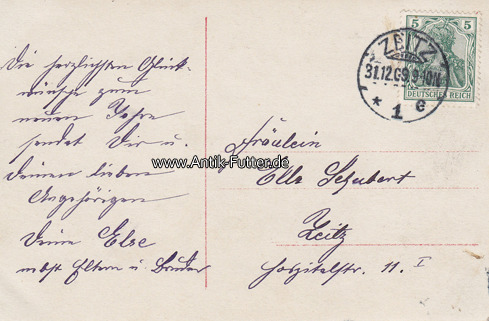 Die herzlichsten Glück-
wünsche zum
neuen Jahre
sendet Dir u.
Deinen lieben
Angehörigen
Deine Else
nebst Eltern u. Bruder
5 5
DEUTSCHES REICH
ZEITZ
31.12.09. 9-10N
* 1 c
www.Antik-Futter.de
Fräulein
Elle Schubert
Zeitz
Hospitalstr. 11. I